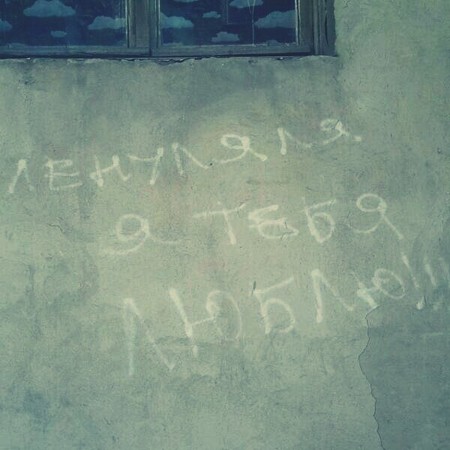 ЛЕНУЛЯЛЯ
Я ТЕБЯ
ЛЮБЛЮ!!!